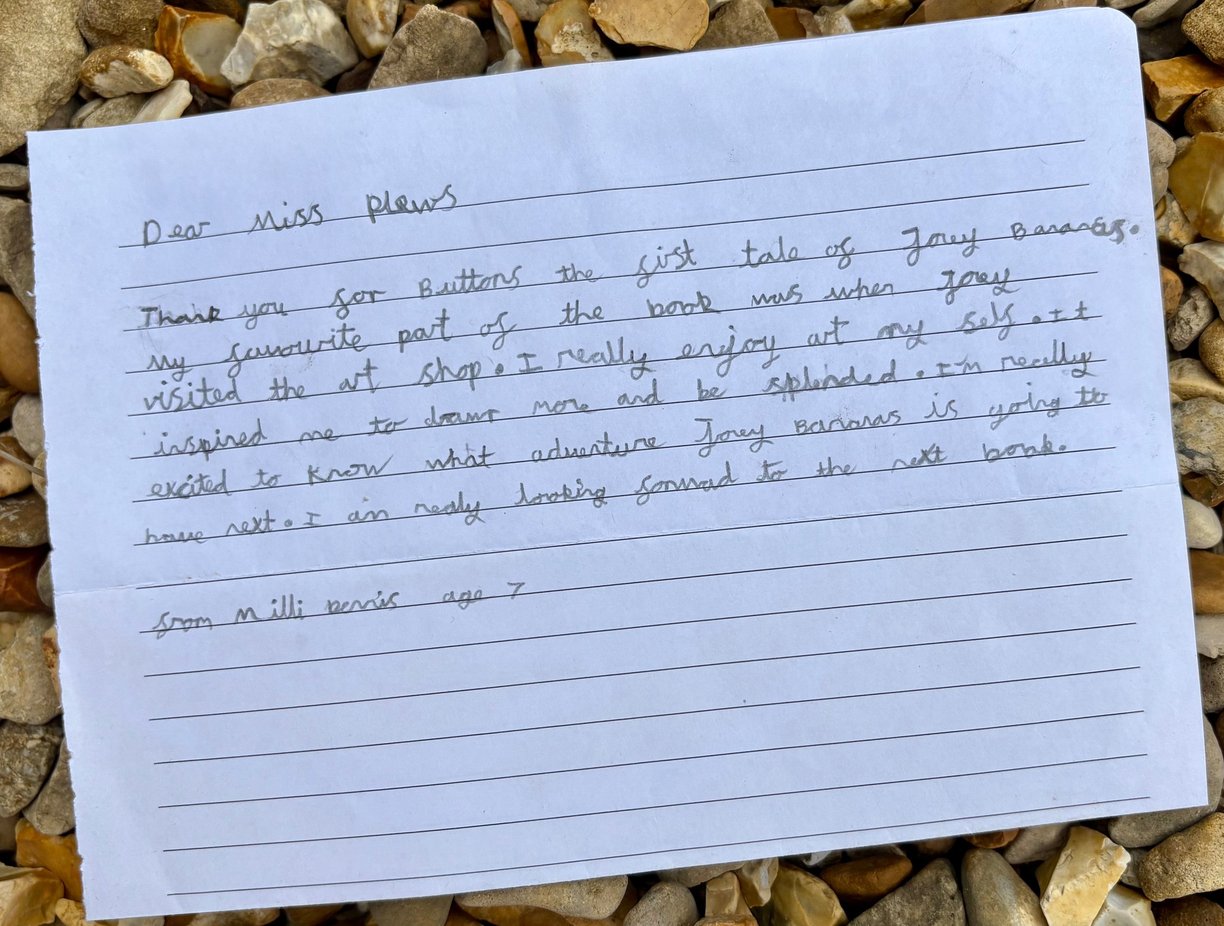 Dear Miss Plews
Thank you for Buttons the first tale of Joey Bananas.
My favourite part of the book was when Joey
visited the art shop. I really enjoy art my self. It
inspired me to draw more and be splended. I'm really
excited to know what adventure Joey Bananas is going to
have next. I am realy looking forward to the next book.
from Milli age 7